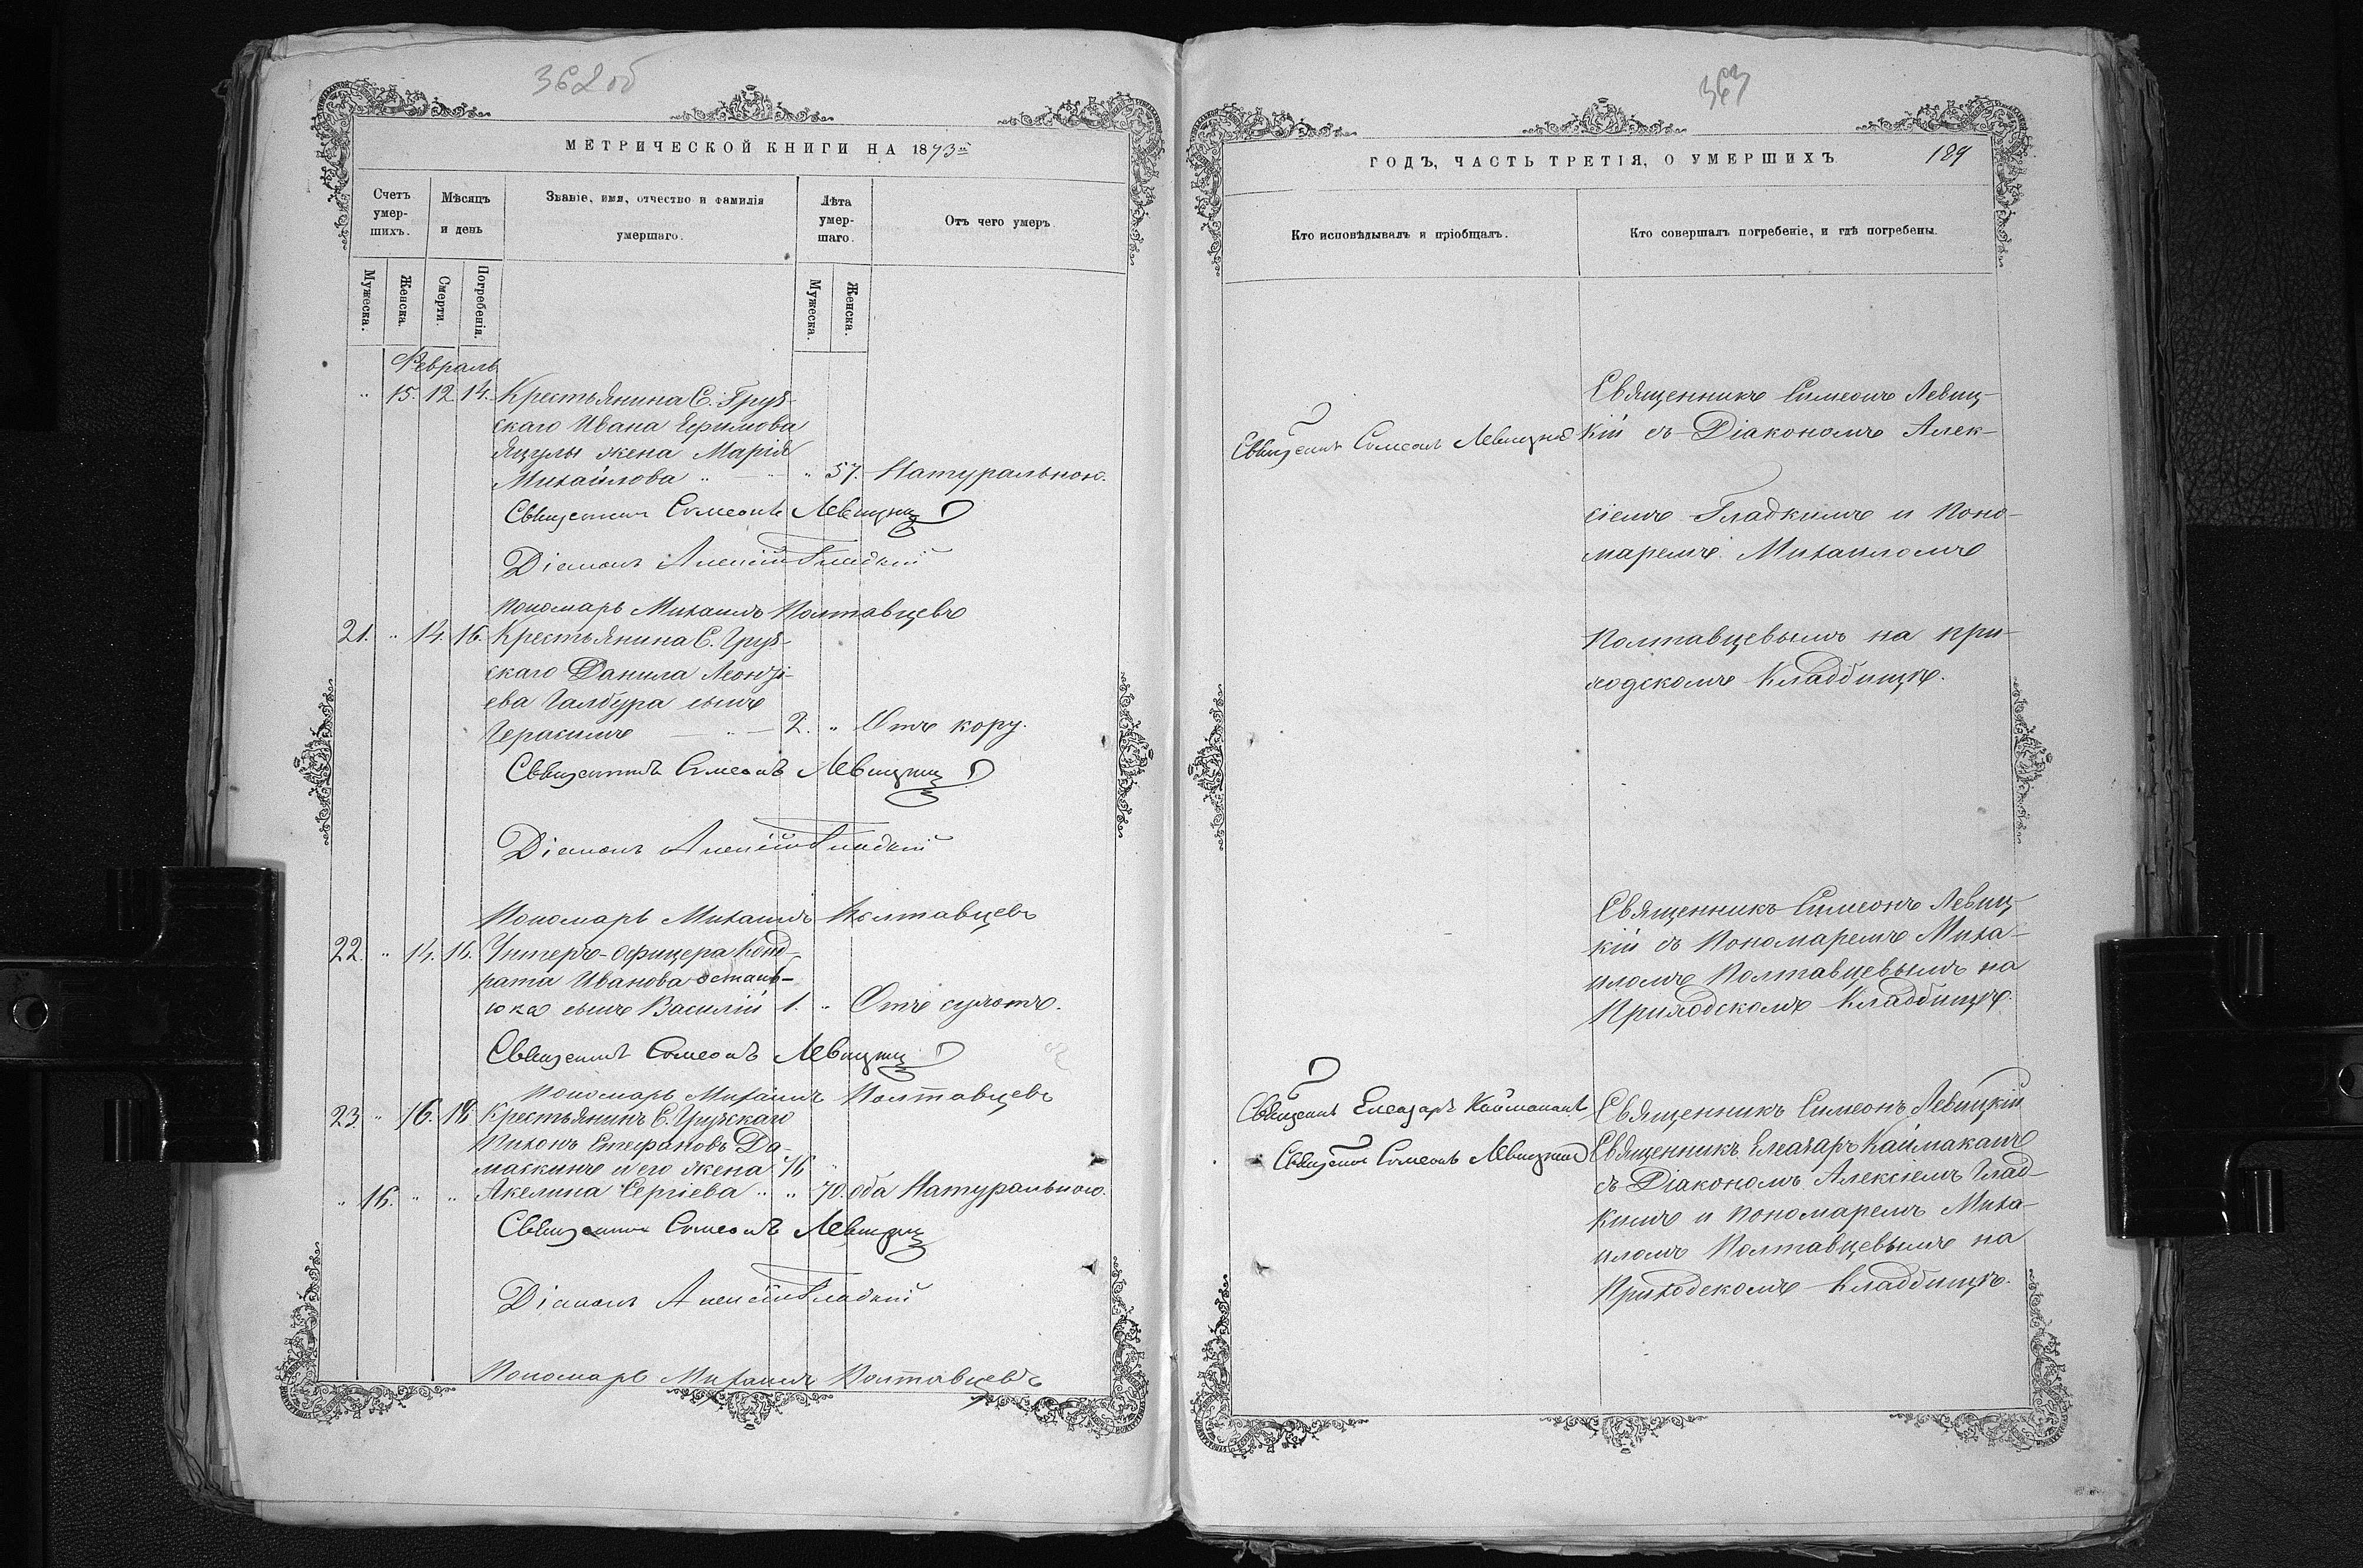 362 об
МЕТРИЧЕСКОЙ КНИГИ НА 1873й
Счетъ умер-шихъ.
Мѣсяцъ и день
Званіе, имя, отчество и фамилія умершаго.
Лѣта умер-шаго.
Отъ чего умеръ
Мужеска.
Женска.
Смерти.
Погребенія.
Мужеска.
Женска.
Февраль
" 15. 12 14. Крестьянина С. Груз-
скаго Ивана Ефимова
Яцулы жена Марія
Михайлова " — " 57. Натуральною.
Священникъ Симеонъ Левицкій
Діаконъ Алексій Гладкій
Пономарь Михаилъ Полтавцевъ
21. " 14. 16. Крестьянина С. Груз-
скаго Данила Леонті-
ева Галбура сынъ
Герасимъ — " — 2. " Отъ кору.
Священникъ Симеонъ Левицкій
Діаконъ Алексій Гладкій
Пономарь Михаилъ Полтавцевъ
22. " 14. 16. Унтеръ-офицера Конд-
рата Иванова Остапь-
юка сынъ Василій 1. " Отъ сухотъ.
Священникъ Симеонъ Левицкій
Пономарь Михаилъ Полтавцевъ
23. " 16. 18 Крестьянинъ С. Грузскаго
Тихонъ Стефановъ Да-
маскинъ и его жена 76
" 16. " " Акелина Сергіева " " 70. оба Натуральною.
Священникъ Симеонъ Левицкій
Діаконъ Алексій Гладкій
Пономарь Михаилъ Полтавцевъ
363
ГОДЪ, ЧАСТЬ ТРЕТІЯ, О УМЕРШИХЪ
189
Кто исповѣдывалъ и пріобщалъ.
Кто совершалъ погребеніе, и гдѣ погребены.
Священникъ Симеонъ Левицкій
Священникъ Симеонъ Левиц-
кій съ Діакономъ Алек-
сіемъ Гладкимъ и Поно-
маремъ Михаиломъ
Полтавцевымъ на при-
ходскомъ Кладбищѣ.
Священникъ Симеонъ Левиц-
кій съ Пономаремъ Миха-
иломъ Полтавцевымъ на
Приходскомъ Кладбищѣ.
Священникъ Елеазаръ Каймаканъ
Священникъ Симеонъ Левицкій
Священникъ Симеонъ Левицкій
Священникъ Елеазаръ Каймаканъ
съ Діакономъ Алексіемъ Глад-
кимъ и Пономаремъ Миха-
иломъ Полтавцевымъ на
Приходскомъ Кладбищѣ.